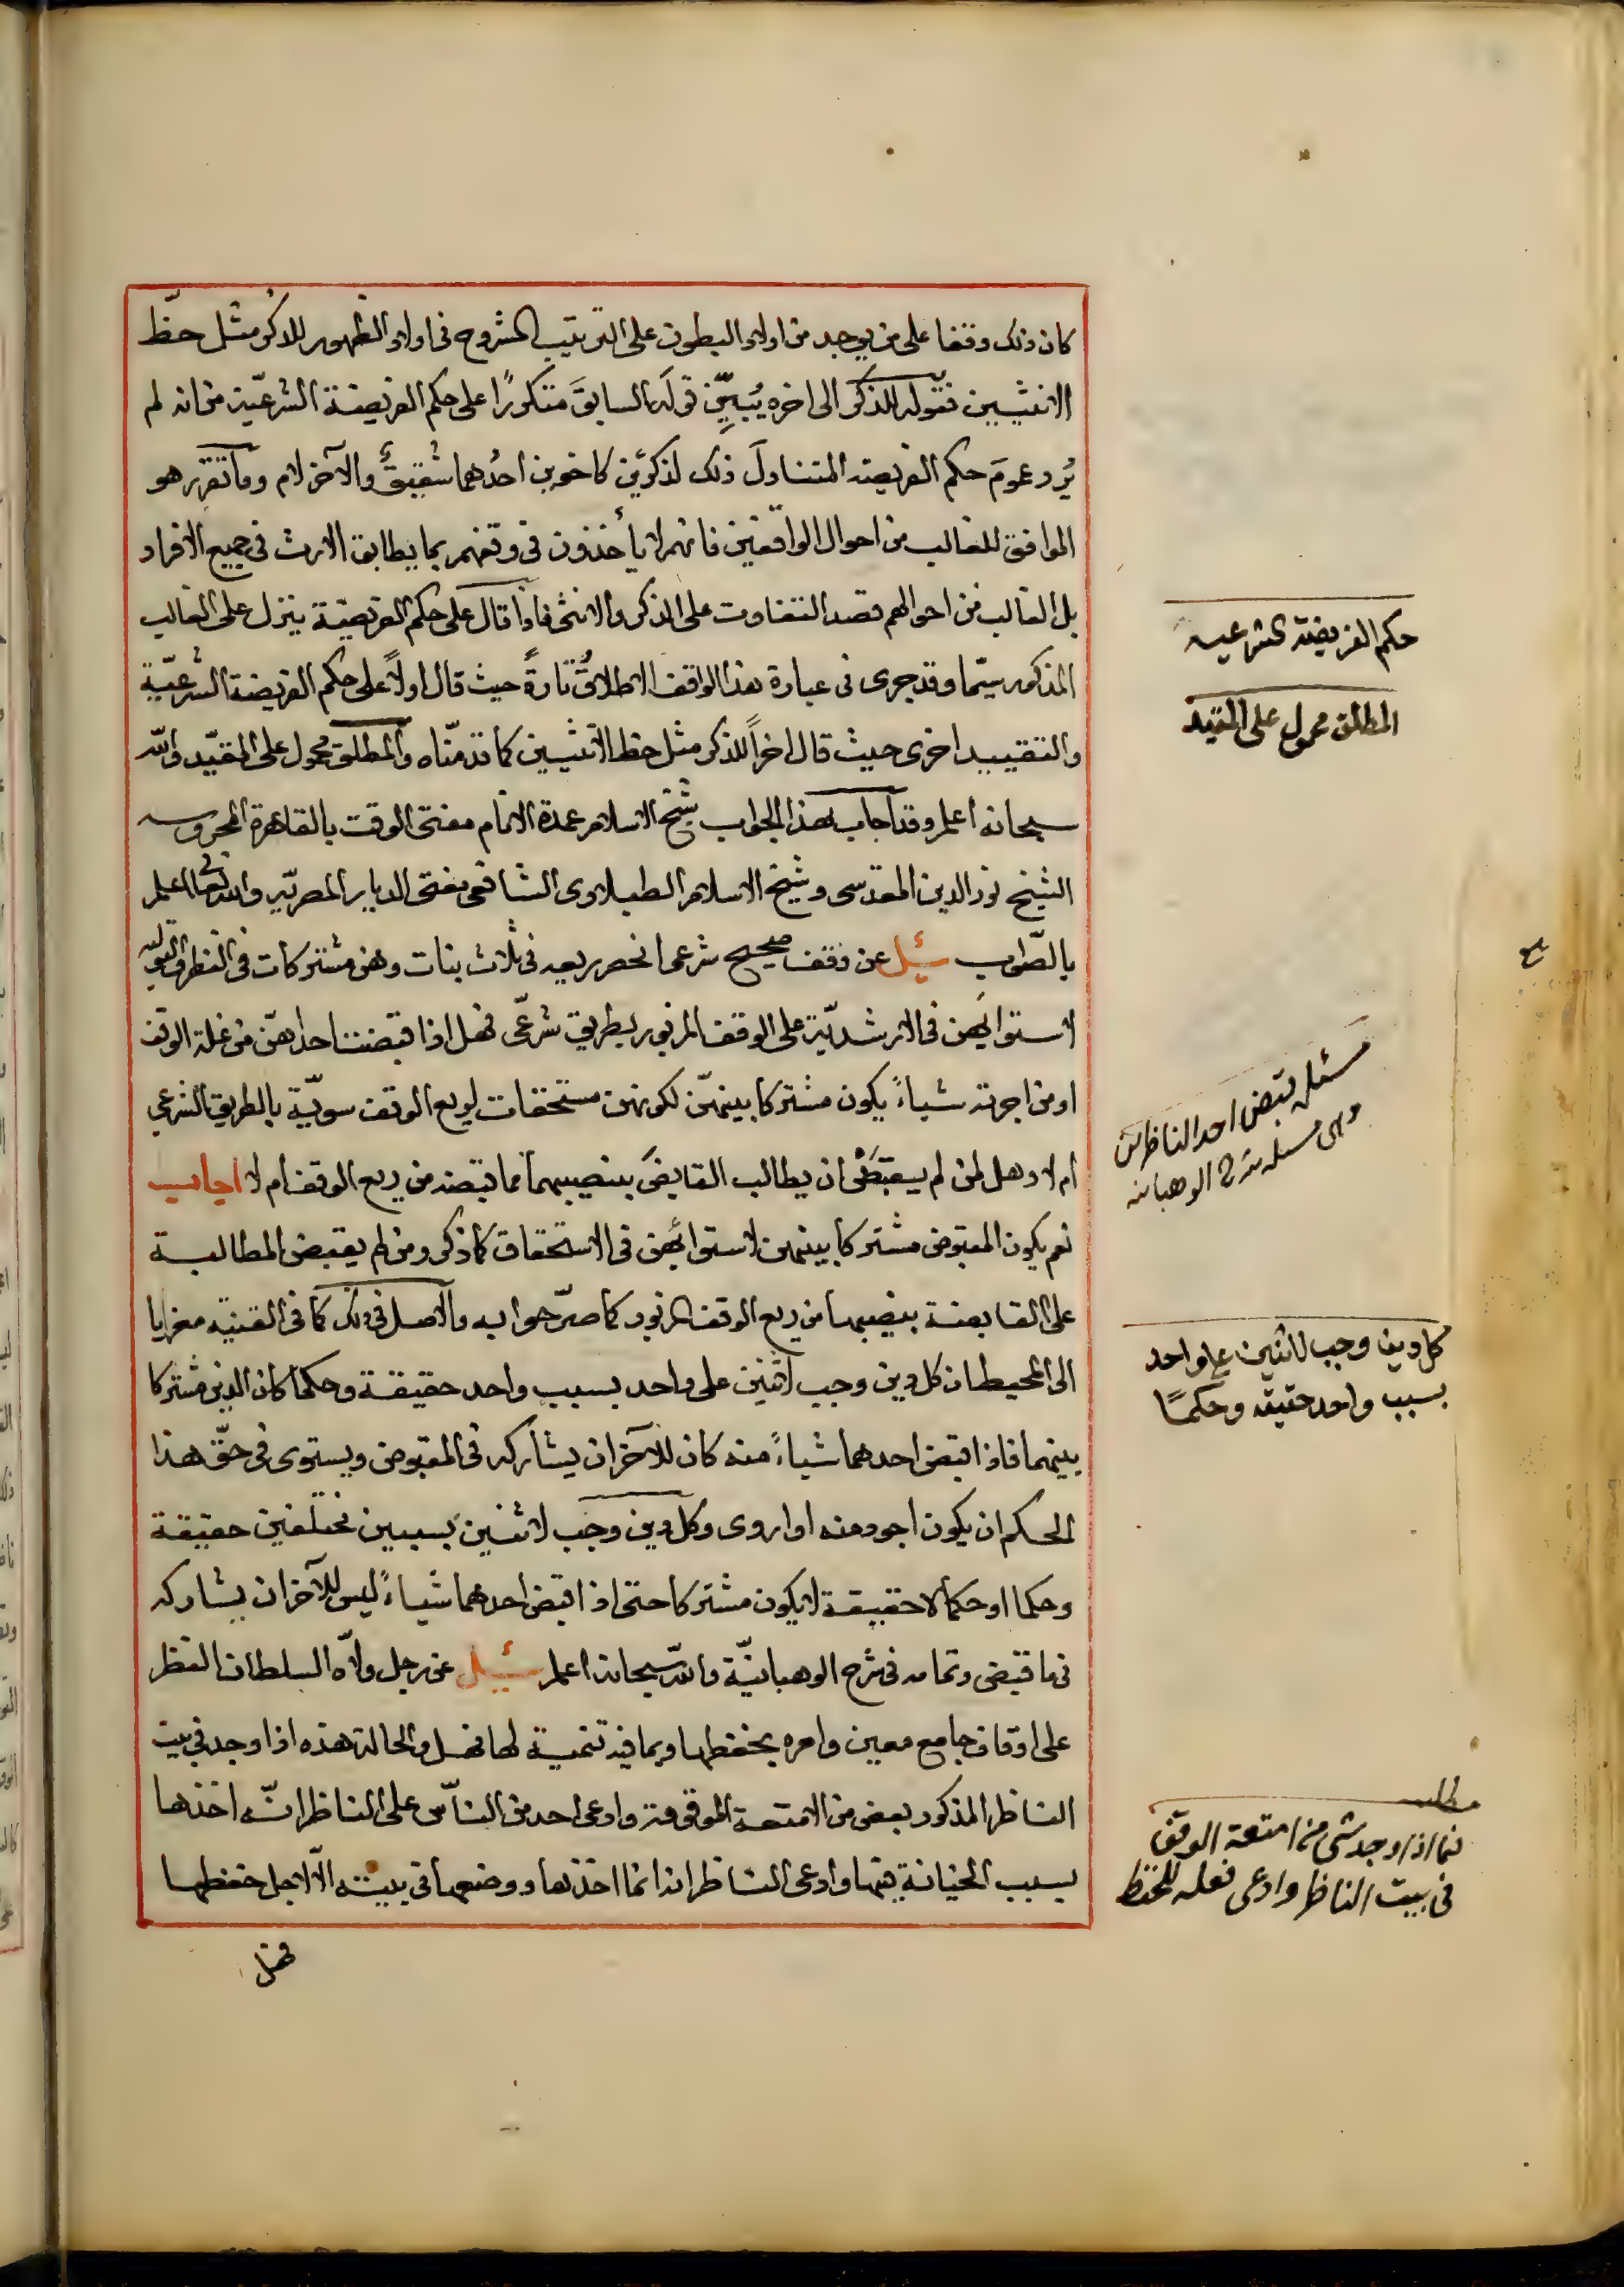 كان ذلك وقفا على من يوجد من اولاد البطون على الترتيب المشروح في اولاد الظهور للذكر مثل حظّ
الانثيين فقوله للذكر الى اخره يُبيِّن قوله السابق متكررًا على حكم الفريضة الشرعيّة من انه لم
يُرد عموم حكم الفريضة المتناول ذلك لذكرين كاخوين احدُهما شقيقٌ والآخر لام وما تقرر هو
الموافق للغالب من احوال الواقفين فانهم لا يأخذون في وقفهم بما يطابق الارث في جميع الافراد
بل الغالب من احوالهم قصد التفاوت على الذكر والانثى فاذا قال على حكم الفريضة ينزل على الغالب
المذكور سيّما وقد جرى في عبارة هذا الواقف الاطلاقُ تارةً حيث قال اولاً على حكم الفريضة الشرعيّة
والتقييد اخرى حيث قال اخراً للذكر مثل حظ الانثيين كما قدمّناه والمطلق محمول على المقيّد والله
سبحانه اعلم وقد اجاب بهذا الجواب شيخ الاسلام عمدة الانام مفتى الوقت بالقاهرة المحروسه
الشيخ نور الدين المقدسى وشيخ الاسلام الطبلاوى الشافعى مفتى الديار المصريّه والله تعالى اعلم
بالصّواب سُئِل عن وقف صحيح شرعى انحصر ريعه في ثلاث بنات وهن مشتركات في النظر والتوليه
لاستوائهن في الارشديّة على الوقف المزبور بطريق شرعّى فهل اذا قبضت احداهنّ من غلة الوقف
او من اجرته شياءً يكون مشتركا بينهنّ لكونهن مستحقات لريع الوقف سويّة بالطريق الشرعي
ام لا وهل لمن لم يقبض ان يطالب القابض بنصيبهما مما قبضه من ريع الوقف ام لا اجاب
نعم يكون المقبوض مشتركا بينهن لاستوائهن في الاستحقاق كما ذكر ومن لم يقبض المطالبة
على القابضة بنصيبها من ريع الوقف المزبور كما صرّحوا به والاصل في ذلك كما في القنية معزيا
الى المحيط ان كل دين وجب لاثنين على واحد بسبب واحد حقيقة وحكما كان الدين مشتركا
بينهما فاذا قبض احدهما شياءً منه كان للآخر ان يشاركه في المقبوض ويستوى في حقّ هذا
الحكم ان يكون اجود منه او اروى وكل دين وجب لاثنين بسببين مختلفين حقيقة
وحكما او حكما لا حقيقة لا يكون مشتركا حتى اذا قبض احدهما شياءً ليس للآخر ان يشاركه
في ما قبض وتمامه في شرح الوهبانيّة والله سبحانه اعلم سُئِل عن رجل ولاّه السلطان النظر
على اوقاف جامع معين وامره بحفظها وبما فيه تنمية لها فهل والحالة هذه اذا وجد في بيت
الناظر المذكور بعض من الامتعة الموقوفة وادعى احد من النّاس على الناظر انّه اخذها
بسبب الخيانة فيها وادعى الناظر انه انما اخذها ووضعها في بيته الّا لاجل حفظها
فهل
حكم الفريضة الشرعيه
المطلق محمول على المقيد
مسئله قبض احد الناظرين
وهى مسئلة الوهبانيه
كل دين وجب لاثنين على واحد
بسبب واحد حقيقه وحكمًا
مطلب
فيما اذا وجد شى من امتعة الوقف
في بيت الناظر وادعى نقله للحفظ